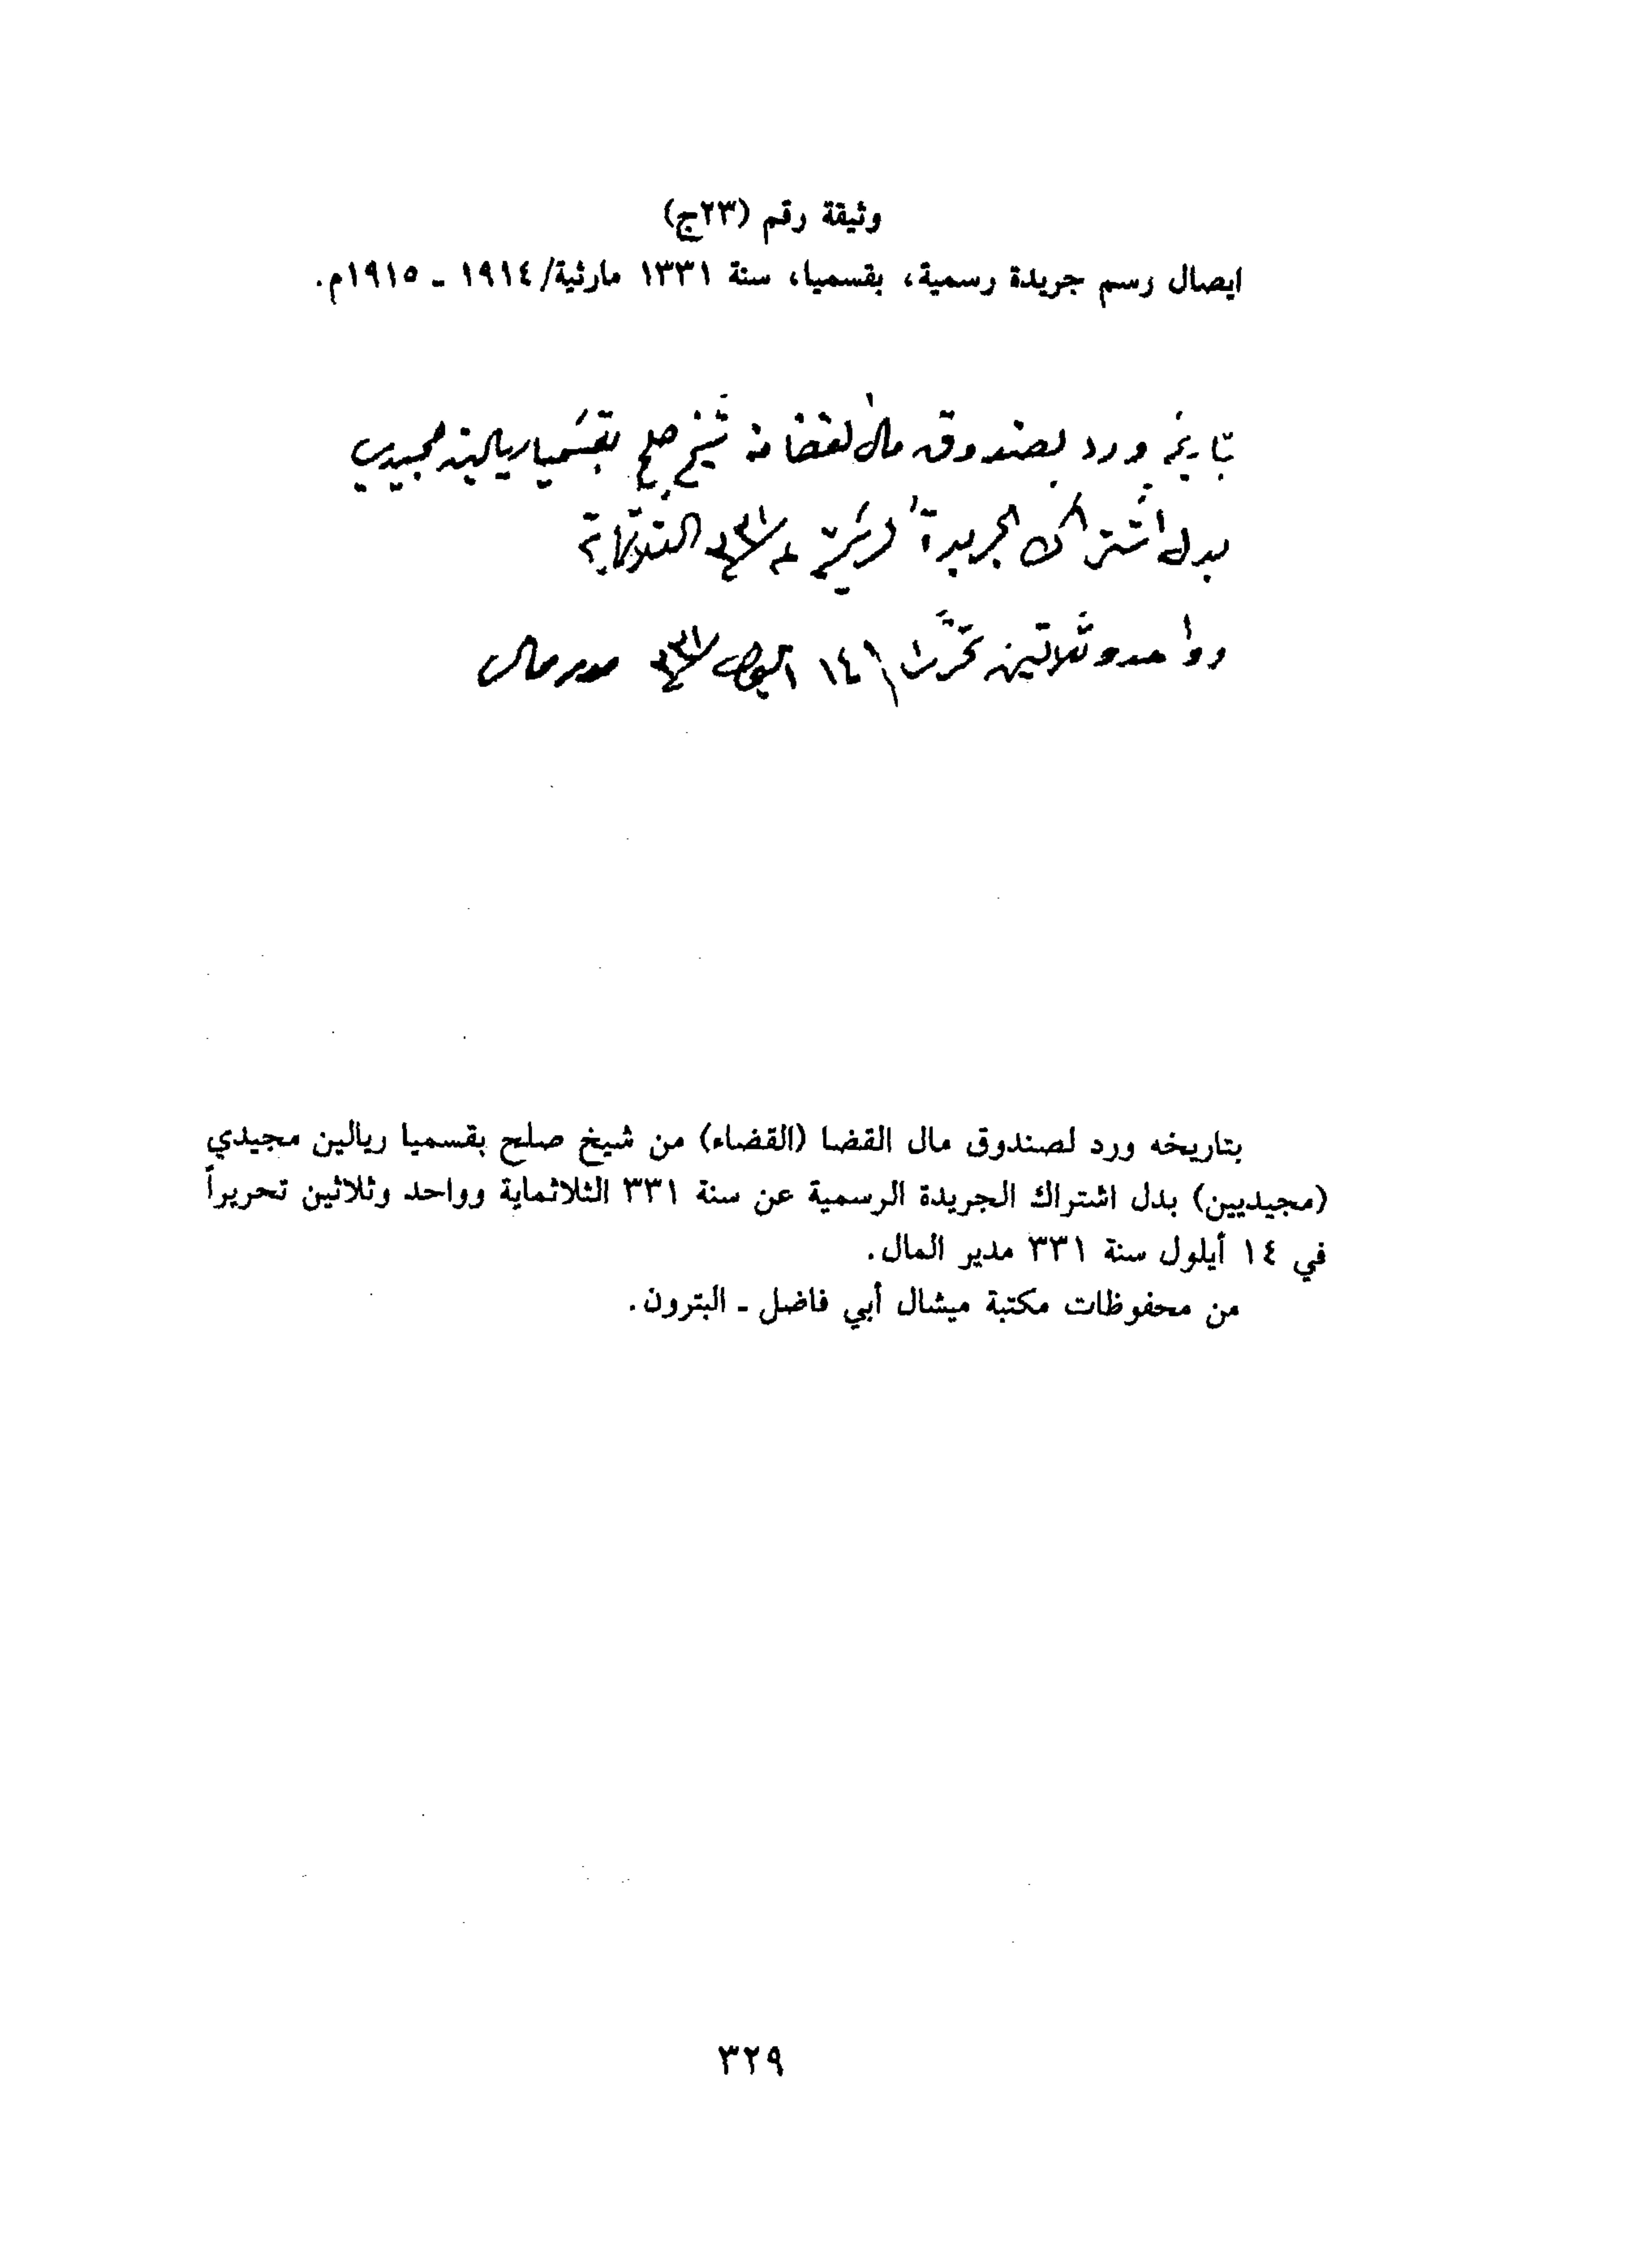 وثيقة رقم (٢٣ج)
ايصال رسم جريدة رسمية، بقسميا، سنة ١٣٣١ مارثية/١٩١٤ ـ ١٩١٥م.
بتاريخه ورد لصندوق مال القضا من شيخ صلح بقسميا ريالين مجيدي
بدل اشتراك الجريدة الرسمية عن سنة ٣٣١ الثلاثماية
وواحد وثلاثين تحريرا في ١٤ ايلول سنة ٣٣١ مدير مال
بتاريخه ورد لصندوق مال القضا (القضاء) من شيخ صلح بقسميا ريالين مجيدي
(مجيديين) بدل اشتراك الجريدة الرسمية عن سنة ٣٣١ الثلاثماية وواحد وثلاثين تحريراً
في ١٤ أيلول سنة ٣٣١ مدير المال.
من محفوظات مكتبة ميشال أبي فاضل ـ البترون.
٣٢٩